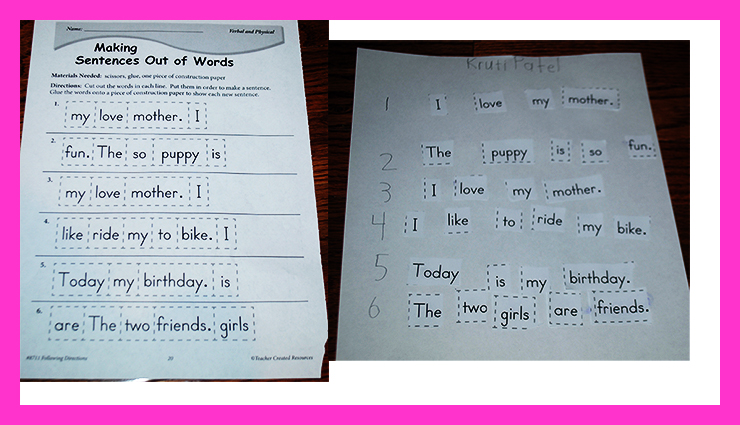 Name:
Verbal and Physical
Making
Sentences Out of Words
Materials Needed: scissors, glue, one piece of construction paper
Directions: Cut out the words in each line. Put them in order to make a sentence.
Glue the words onto a piece of construction paper to show each new sentence.
1. my love mother. I
2. fun. The so puppy is
3. my love mother. I
4. like ride my to bike. I
5. Today my birthday. is
6. are The two friends. girls
#8755 Following Directions 20 ©Teacher Created Resources
Kruti Patel
1 I love my mother.
2 The puppy is so fun.
3 I love my mother.
4 I like to ride my bike.
5 Today is my birthday.
6 The two girls are friends.